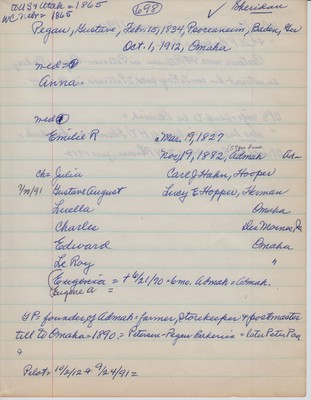 au S + Utah = 1865 (698) ✓ Sheridan
WC Nebr = 1865
Pegau, Gustave, Feb. 15, 1834, Baden, Ger
Oct. 1, 1912, Omaha
med = ①
Anna.
med ①
Emilie R Mar. 19, 1827
Nov. 19, 1882, Admah
ch = Julia Carl J Hahn, Hooper
7/10/91 Gustave August Lucy E Hopper, Herman
Luella Omaha
Charlie Des Moines, Ia
Edward Omaha
Le Roy "
(Eugenia = + 6/21/70 - 6 mo. Admah = Admah.
Eugene A =
GP = founder of Admah = farmer, Storekeeper + postmaster
till to Omaha = 1890. = Peterson - Pegau Bakeries = later Peter Pan
Pilot = 10/2/12 + 9/24/91 =